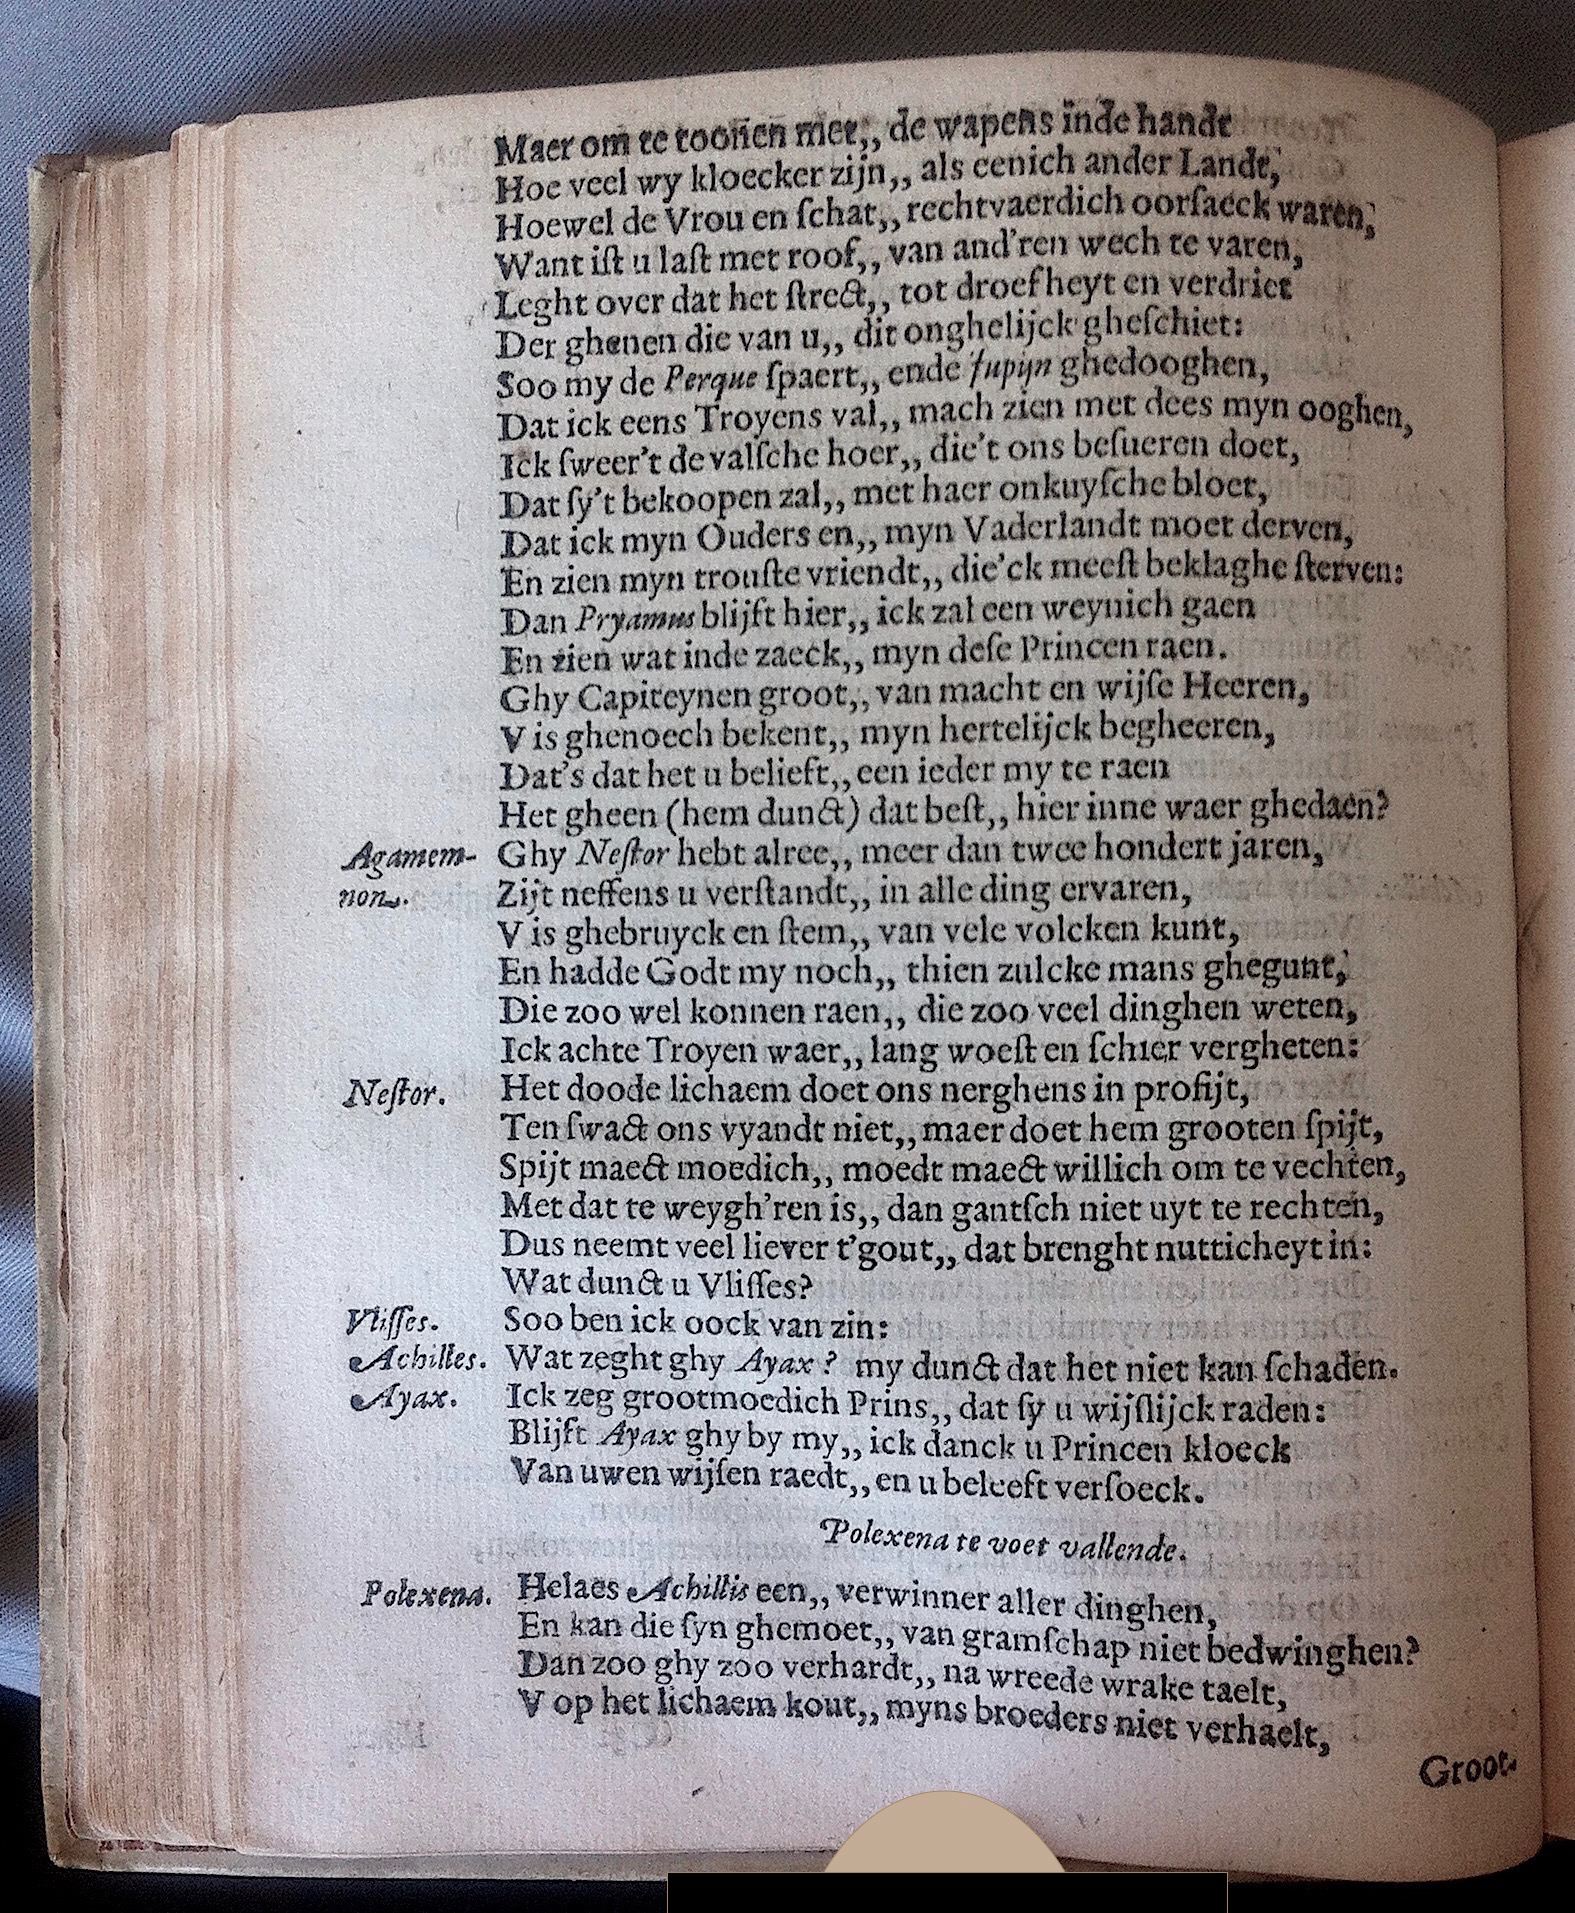 Maer om te toonen met,, de wapens inde handt
Hoe veel wy kloecker zijn,, als eenich ander Landt,
Hoewel de Vrou en ſchat,, rechtvaerdich oorſaeck waren,
Want iſt u laſt met roof,, van and'ren wech te varen,
Leght over dat het ſtrect,, tot droefheyt en verdriet
Der ghenen die van u,, dit onghelijck gheſchiet:
Soo my de Perque ſpaert,, ende Jupijn ghedooghen,
Dat ick eens Troyens val,, mach zien met dees myn ooghen,
Ick ſweer't de valſche hoer,, die't ons beſueren doet,
Dat ſy't bekoopen zal,, met haer onkuyſche bloet,
Dat ick myn Ouders en,, myn Vaderlandt moet derven,
En zien myn trouſte vriendt,, die'ck meeſt beklaghe ſterven:
Dan Pryamus blijft hier,, ick zal een weynich gaen
En zien wat inde zaeck,, myn deſe Princen raen.
Ghy Capiteynen groot,, van macht en wijſe Heeren,
V is ghenoech bekent,, myn hertelijck begheeren,
Dat's dat het u belieft,, een ieder my te raen
Het gheen (hem dunct) dat beſt,, hier inne waer ghedaen?
Agamem- Ghy Neſtor hebt alree,, meer dan twee hondert jaren,
non. Zijt neffens u verſtandt,, in alle ding ervaren,
V is ghebruyck en ſtem,, van vele volcken kunt,
En hadde Godt my noch,, thien zulcke mans ghegunt,
Die zoo wel konnen raen,, die zoo veel dinghen weten,
Ick achte Troyen waer,, lang woeſt en ſchier vergheten:
Neſtor. Het doode lichaem doet ons nerghens in profijt,
Ten ſwact ons vyandt niet,, maer doet hem grooten ſpijt,
Spijt maect moedich,, moedt maect willich om te vechten,
Met dat te weygh'ren is,, dan gantſch niet uyt te rechten,
Dus neemt veel liever t'gout,, dat brenght nutticheyt in:
Wat dunct u Vliſſes?
Vliſſes. Soo ben ick oock van zin:
Achilles. Wat zeght ghy Ayax? my dunct dat het niet kan ſchaden.
Ayax. Ick zeg grootmoedich Prins,, dat ſy u wijſlijck raden:
Blijft Ayax ghy by my,, ick danck u Princen kloeck
Van uwen wijſen raedt,, en u beleeft verſoeck.
Polexena te voet vallende.
Polexena. Helaes Achillis een,, verwinner aller dinghen,
En kan die ſyn ghemoet,, van gramſchap niet bedwinghen?
Dan zoo ghy zoo verhardt,, na wreede wrake taelt,
V op het lichaem kout,, myns broeders niet verhaelt,
Groot-